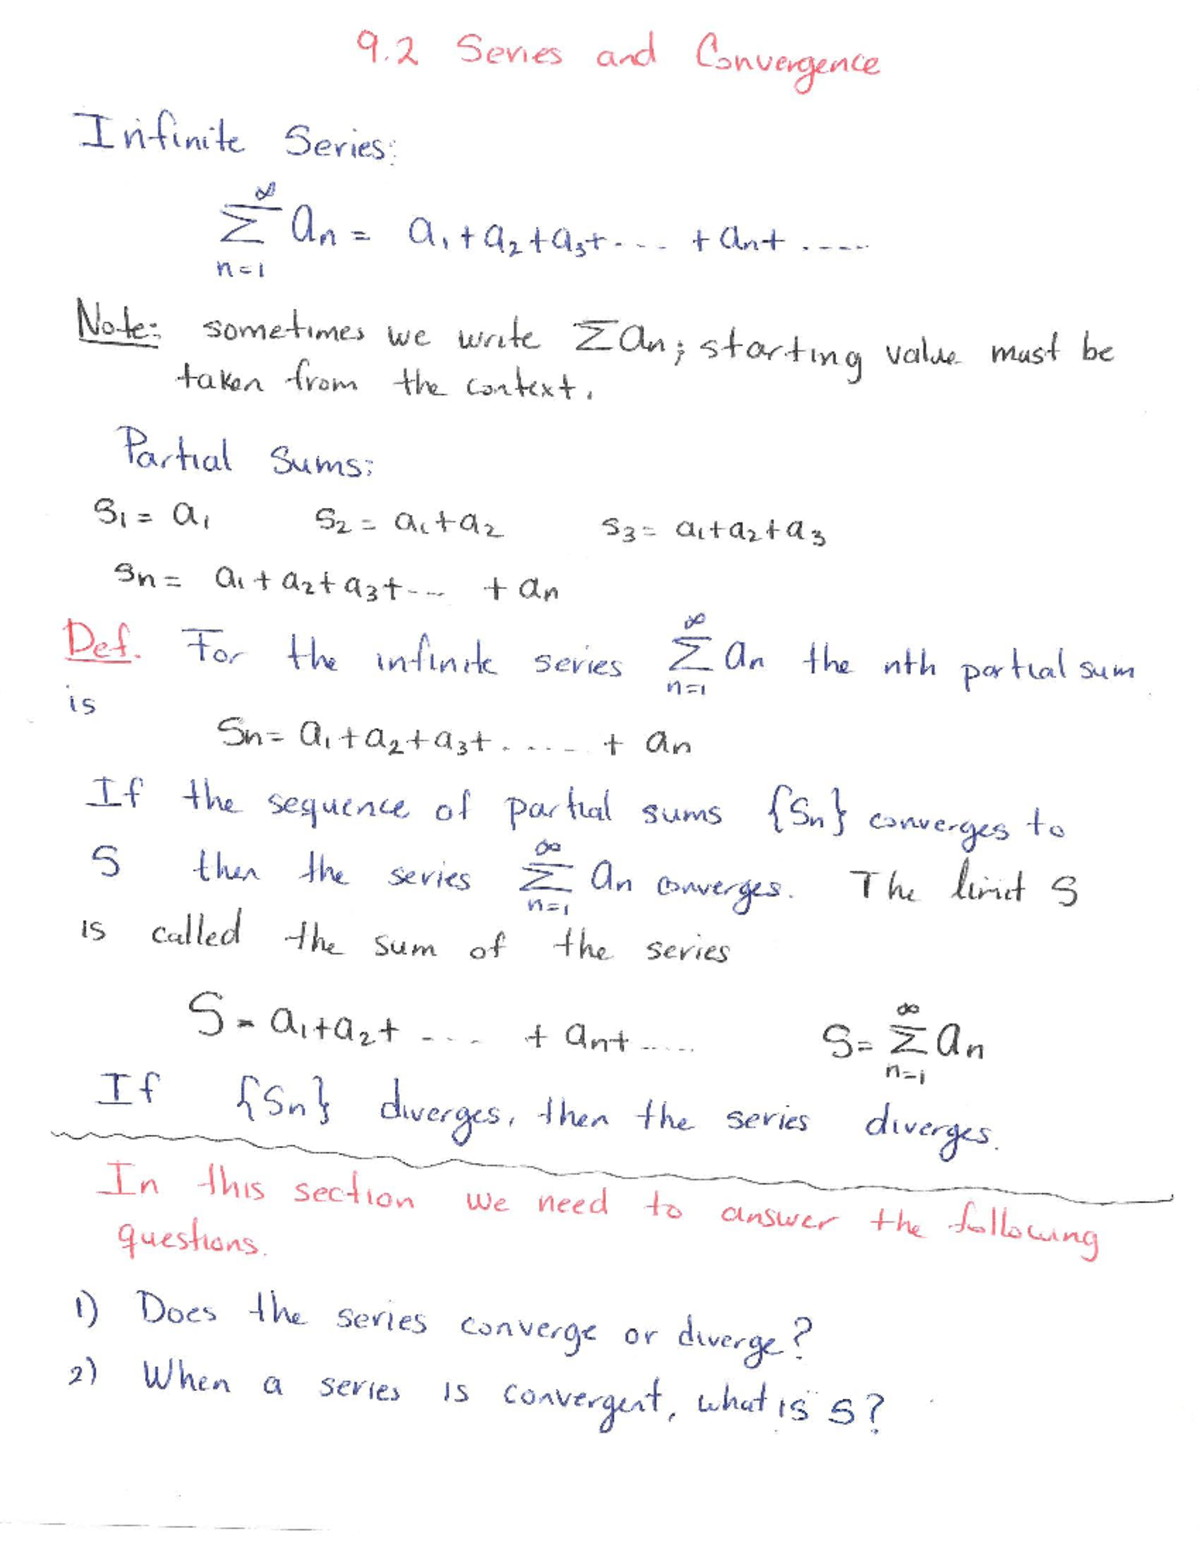 9.2 Series and Convergence
Infinite Series:
∞
∑ an = a1 + a2 + a3 + ... + an + .....
n=1
Note: sometimes we write ∑an; starting value must be
taken from the context.
Partial Sums:
S1 = a1 S2 = a1 + a2 S3 = a1 + a2 + a3
Sn = a1 + a2 + a3 + ... + an
∞
Def. For the infinite series ∑ an the nth partial sum
n=1
is
Sn = a1 + a2 + a3 + ..... + an
If the sequence of partial sums {Sn} converges to
∞
S then the series ∑ an converges. The limit S
n=1
is called the sum of the series
∞
S = a1 + a2 + .... + an + ..... S = ∑ an
n=1
If {Sn} diverges, then the series diverges.
In this section we need to answer the following
questions.
1) Does the series converge or diverge?
2) When a series is convergent, what is S?